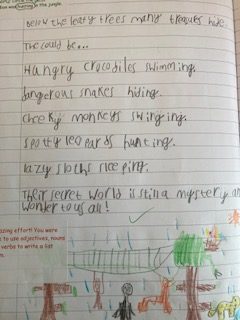 in the jungle.
Below the leafy trees many treaqurs hide.
The could be...
Hangry crocodiles swimming.
dangerous snakes hiding.
cheeky monkeys swinging.
spotty leopards hunting.
lazy sloths sleeping.
Their secret world is still a mystery an
wonder to us all!
azing effort! You were
to use adjectives, nouns
verbs to write a list